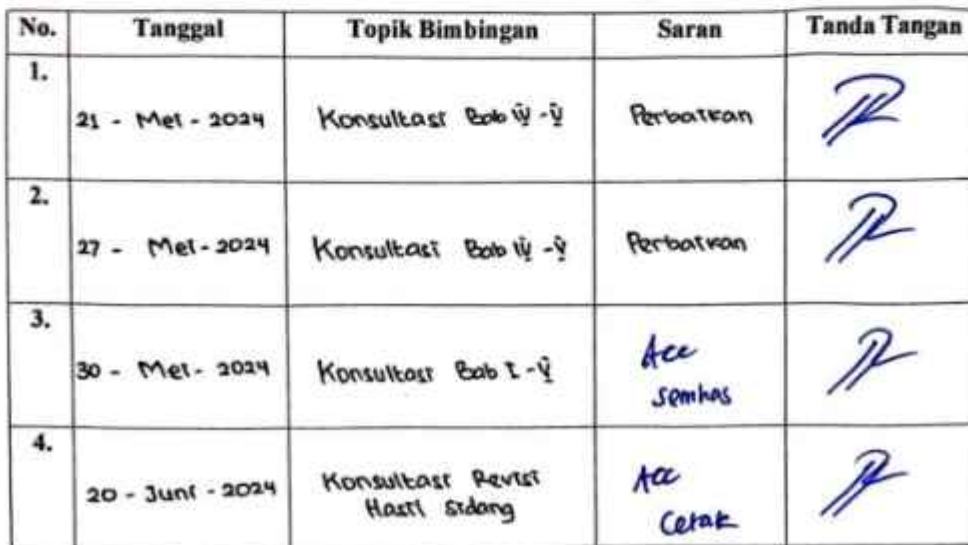 No. Tanggal Topik Bimbingan Saran Tanda Tangan
1.
21 - Mei - 2024 Konsultasi Bab IV - V Perbaikan
2.
27 - Mei - 2024 Konsultasi Bab IV - V Perbaikan
3.
30 - Mei - 2024 Konsultasi Bab I - V Acc
semhas
4.
20 - Juni - 2024 Konsultasi Revisi Acc
Hasil Sidang Cetak